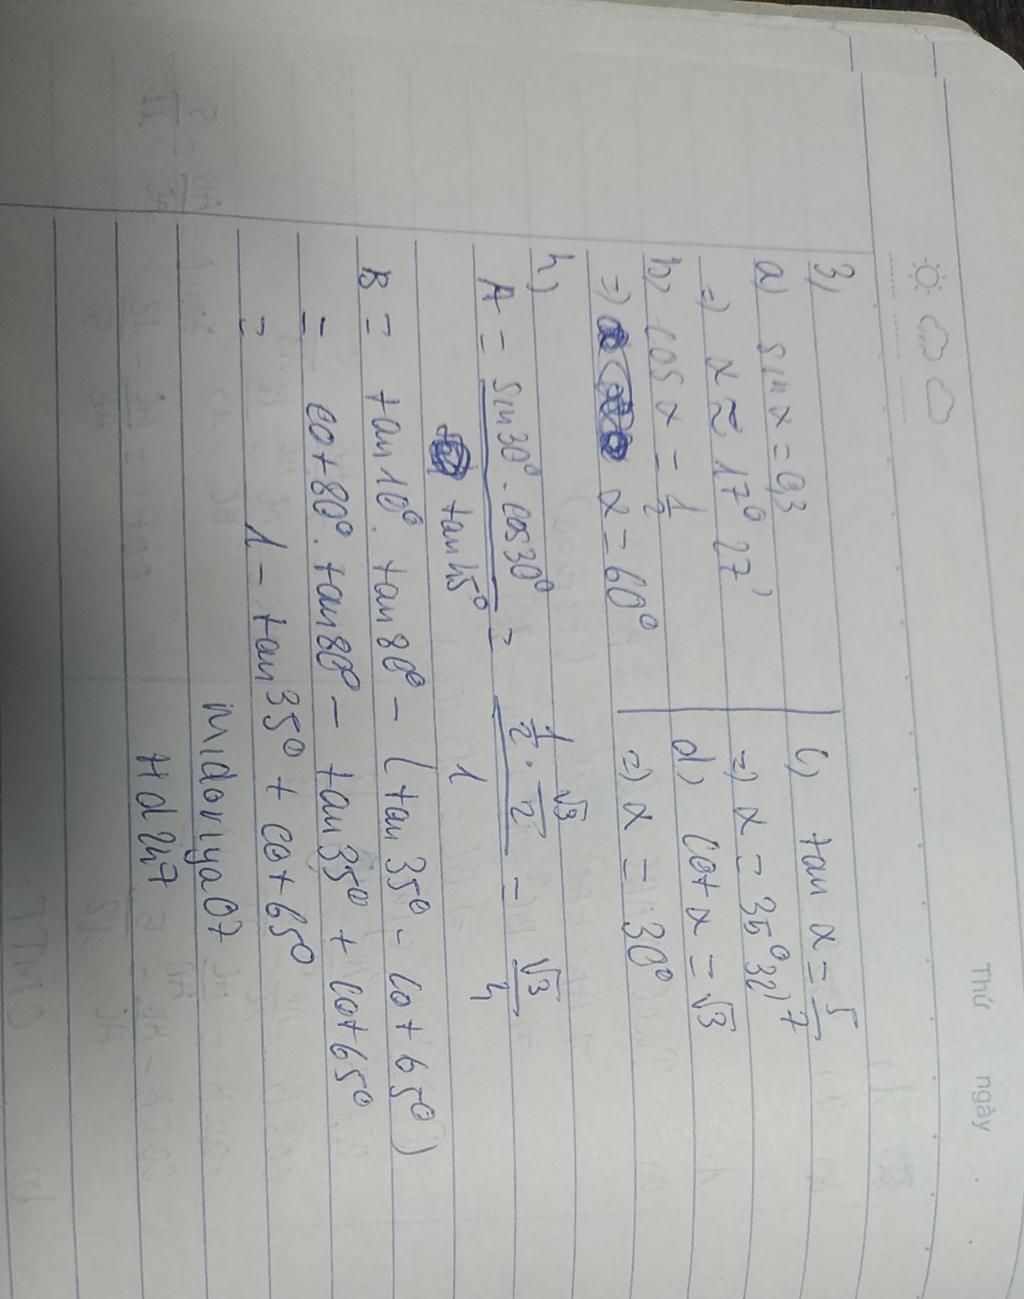 Thứ ngày
3)
a) sin α = 0,3
=) α ≈ 17° 27'
b) cos α = 1/2
=) α = 60°
c) tan α = 5/7
=) α = 35° 32'
d) cot α = √3
=) α = 30°
4)
A = sin30° . cos30° / tan45° = 1/2 . √3/2 / 1 = √3/4
B = tan10° . tan80° - (tan 35° - cot 65°)
= cot 80° . tan80° - tan35° + cot 65°
= 1 - tan35° + cot 65°
Midoriya07
Hd247